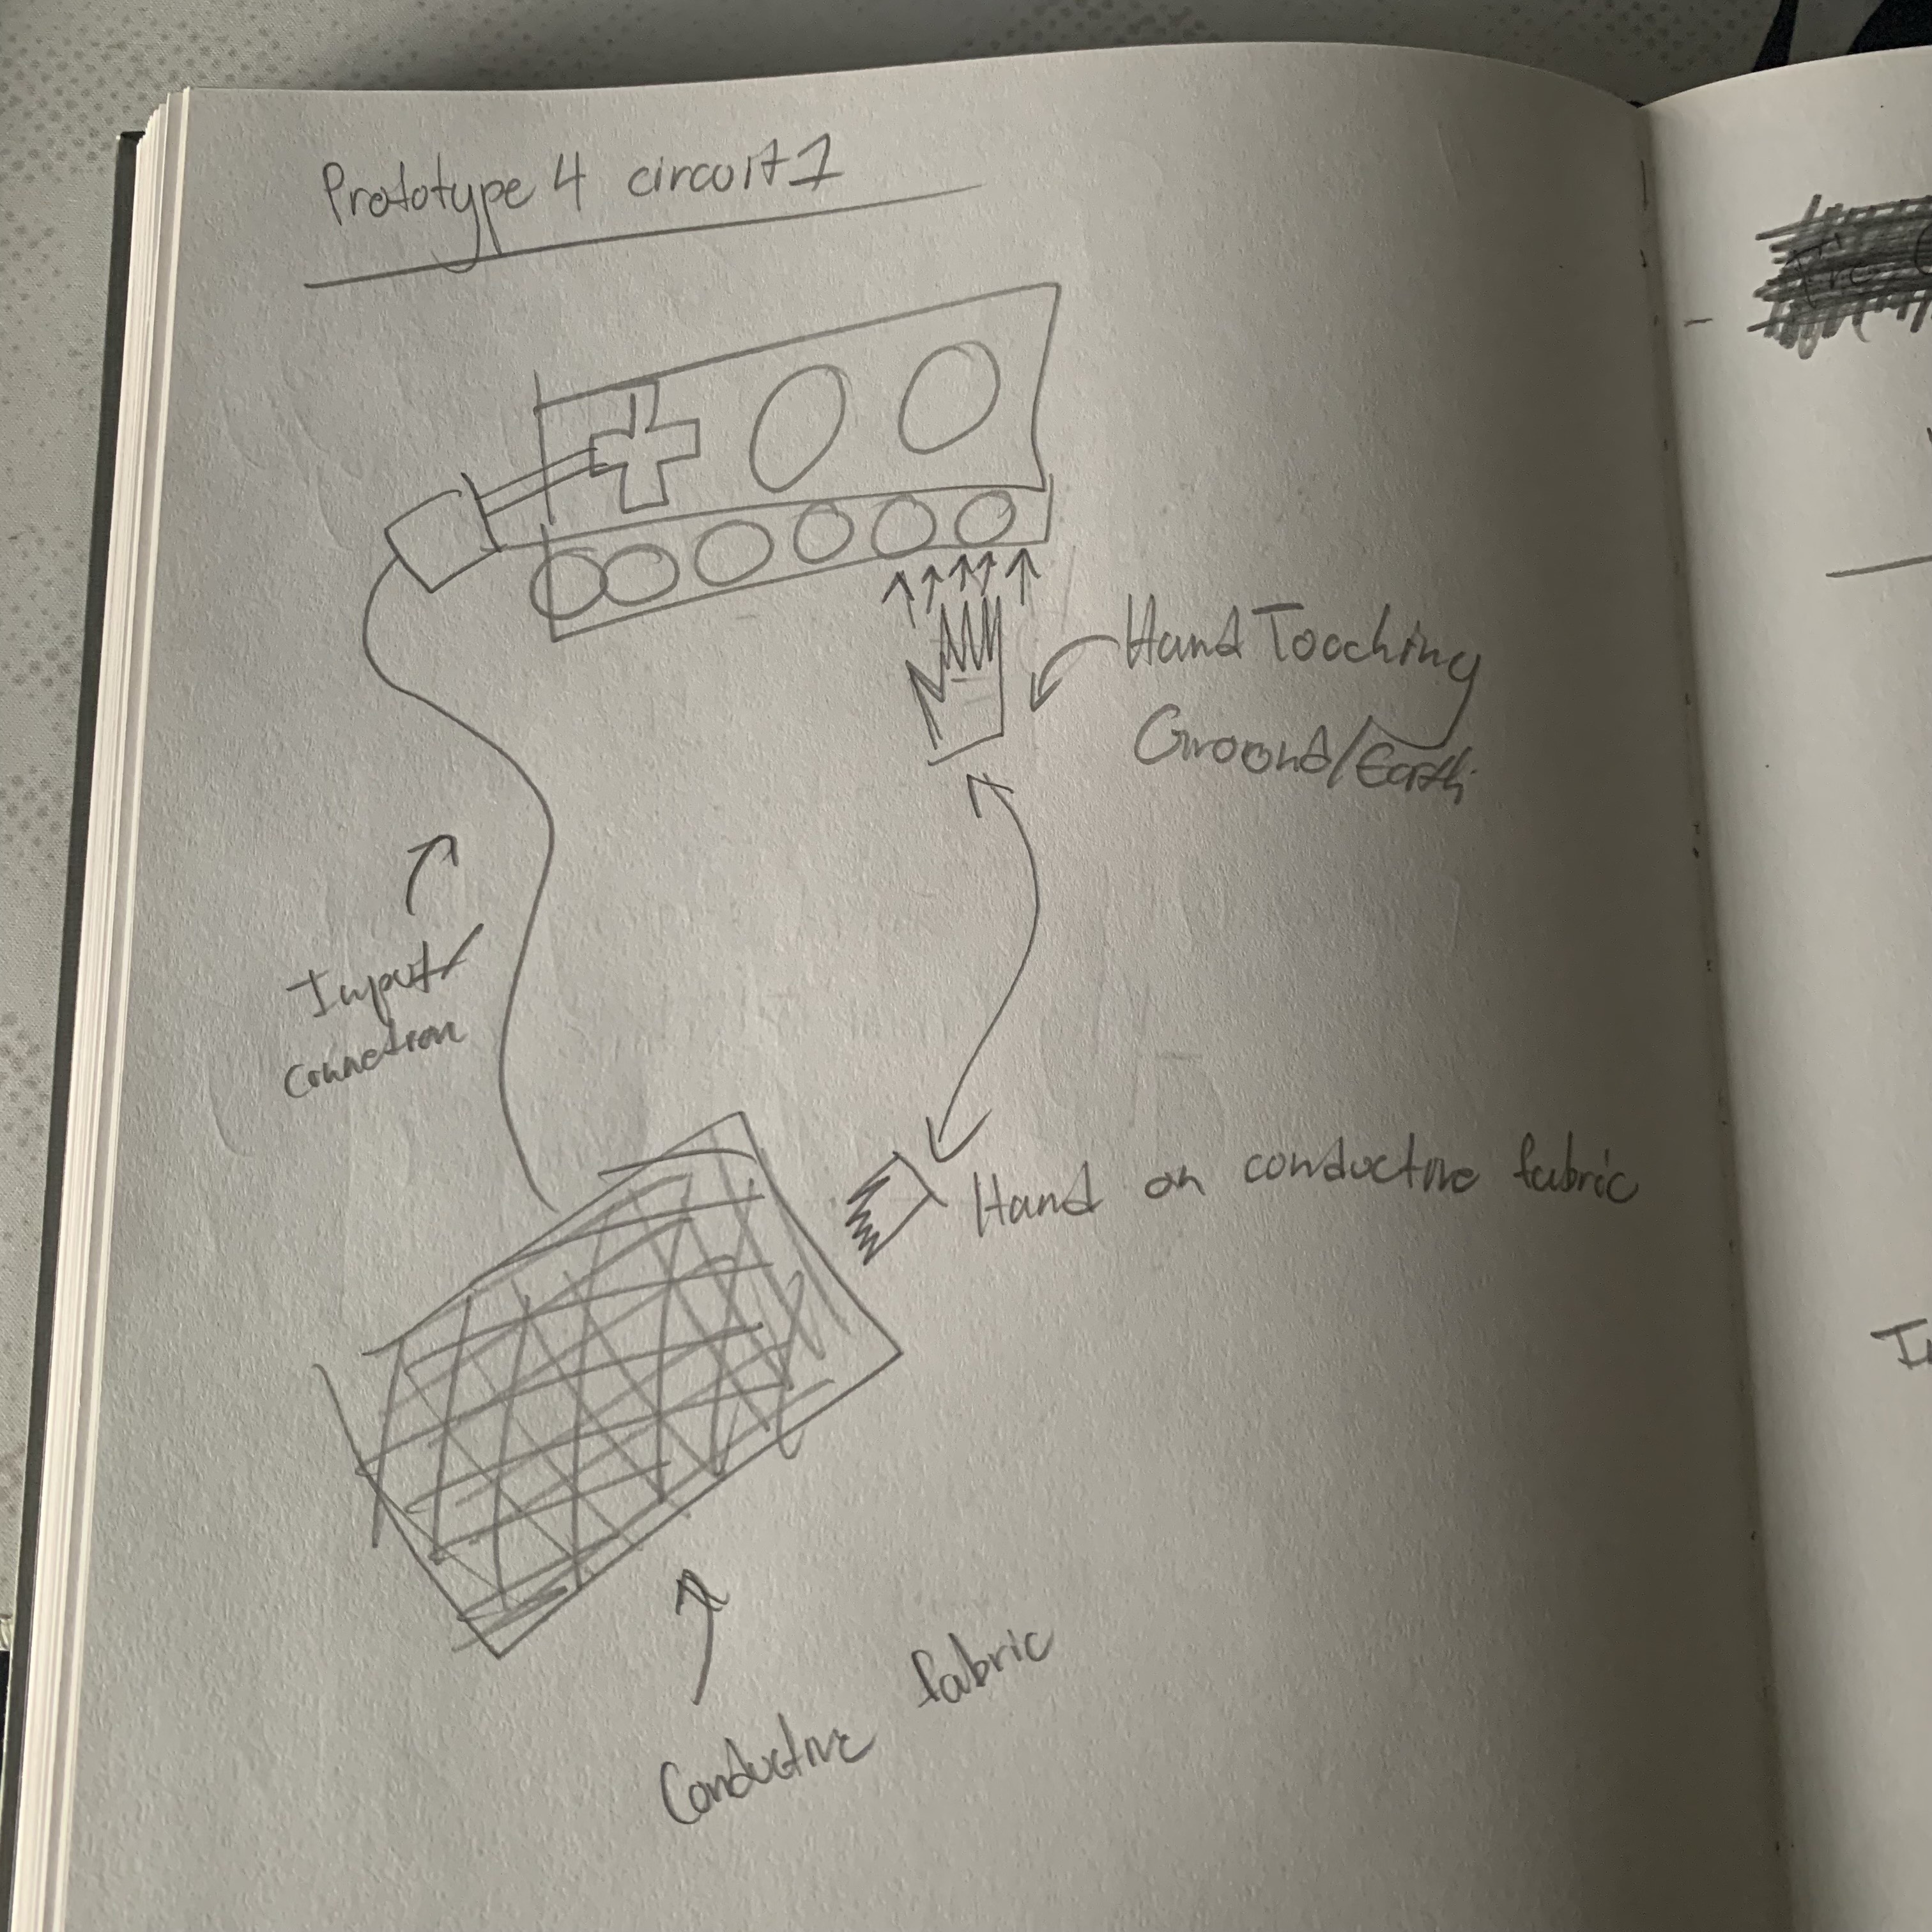 Prototype 4 circuit 1
Hand Touching
Ground/Earth
Input
connetion
Hand on conductive fabric
Conductive fabric